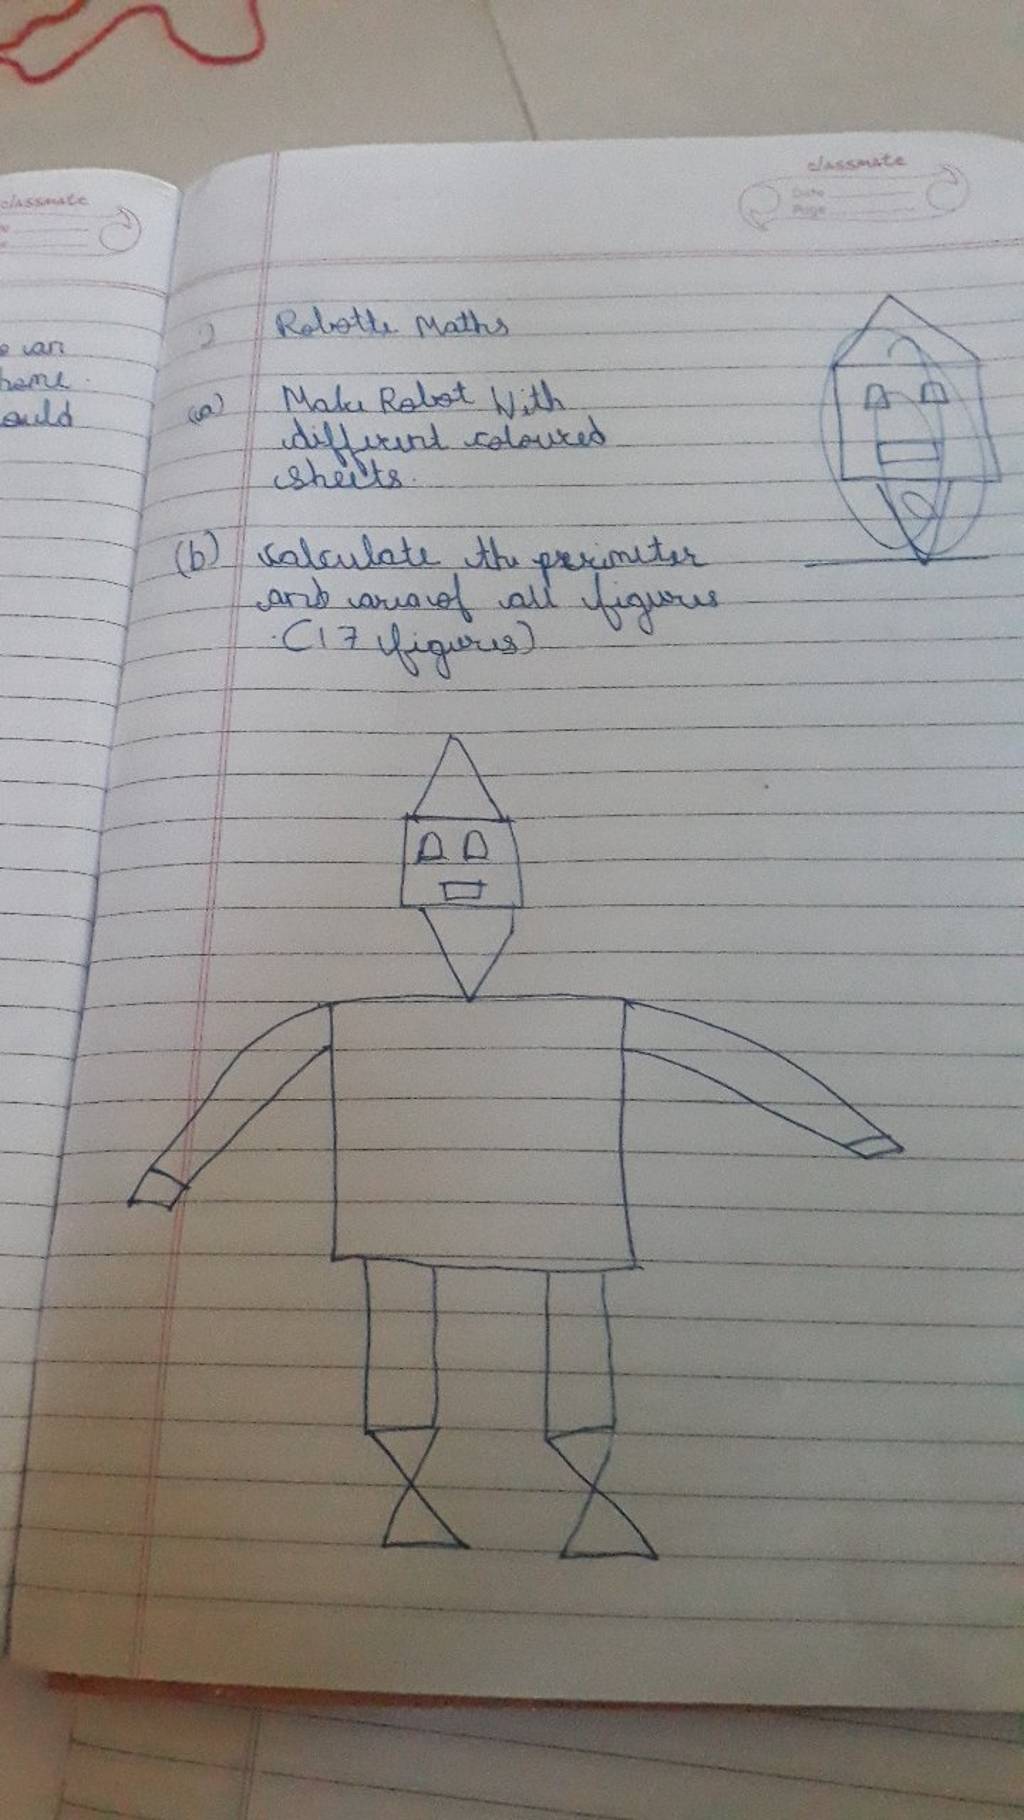 classmate
can
home.
ould
classmate
Date
Page
Robotte Maths
(a) Make Robot With
different coloured
sheets.
(b) calculate the perimeter
and area of all figures
(17 figures)